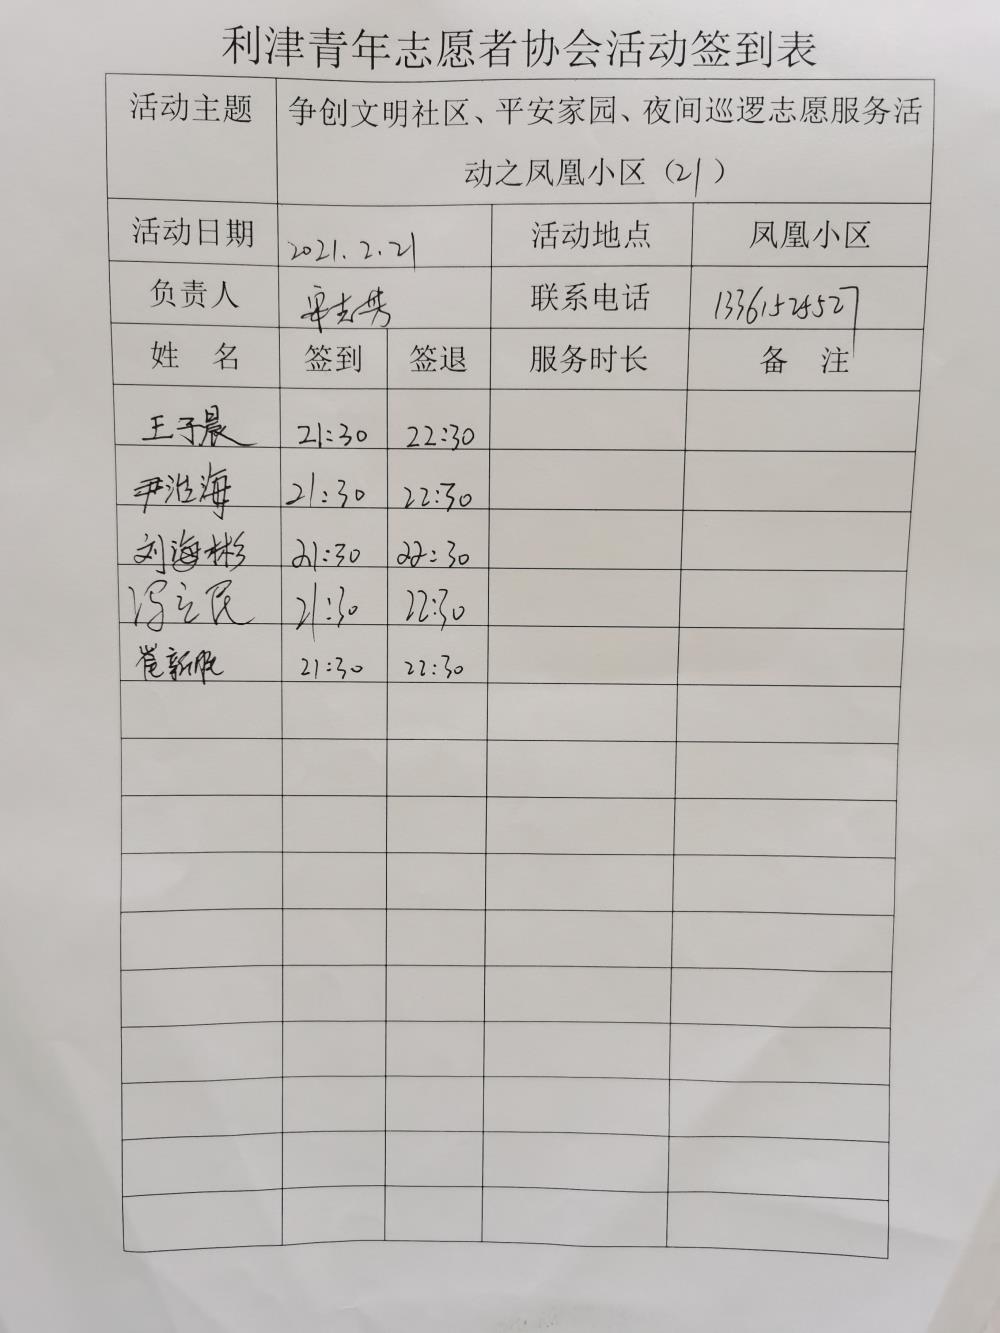 利津青年志愿者协会活动签到表
活动主题 争创文明社区、平安家园、夜间巡逻志愿服务活
动之凤凰小区（21）
活动日期 2021.2.21 活动地点 凤凰小区
负责人 联系电话 13361524527
姓 名 签到 签退 服务时长 备 注
王子晨 21:30 22:30
尹 海 21:30 22:30
刘海彬 21:30 22:30
冯立民 21:30 22:30
崔新 21:30 22:30